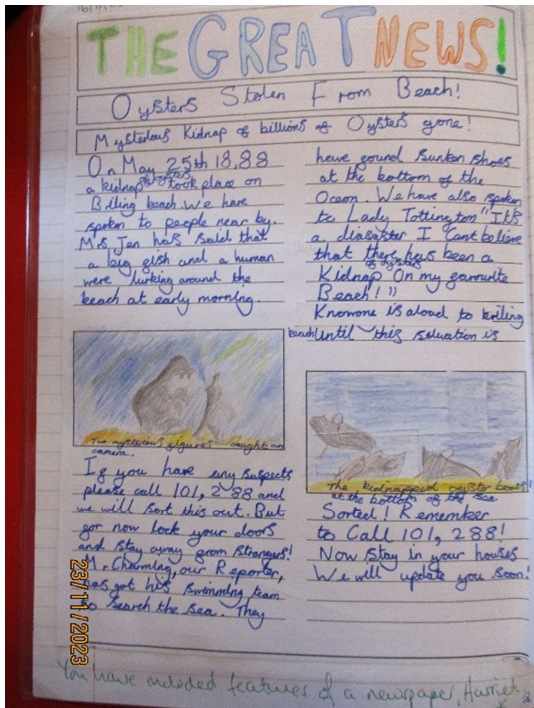 THE GREAT NEWS!
Oysters Stolen From Beach!
Mysterious Kidnap of billions of Oysters gone!
On May 25th 18,88
a kidnap of oysters took place on
Biling beach. We have
spoken to people near by.
Mrs Jen has said that
a big fish and a human
were lurking around the
beach at early morning.
Two mysterious figures caught on
camera.
If you have any suspects
please call 101, 288 and
we will sort this out. But
for now lock your doors
and stay away from strangers!
Mr Charming, our Reporter,
has got his swimming team
to search the sea. They
have found sunken shoes
at the bottom of the
Ocean. We have also spoken
to Lady Tottington "It's
a diasaster I Cant believe
that there has been a
Kidnap of oysters On my favourite
Beach!"
Knowone is aloud to briling
beach until this situation is
The kidnapped oyster boats!
at the bottom of the sea
Sorted! Remember
to Call 101, 288!
Now stay in your houses
We will update you soon!
23/11/2023
You have included features of a newspaper, Harriet.